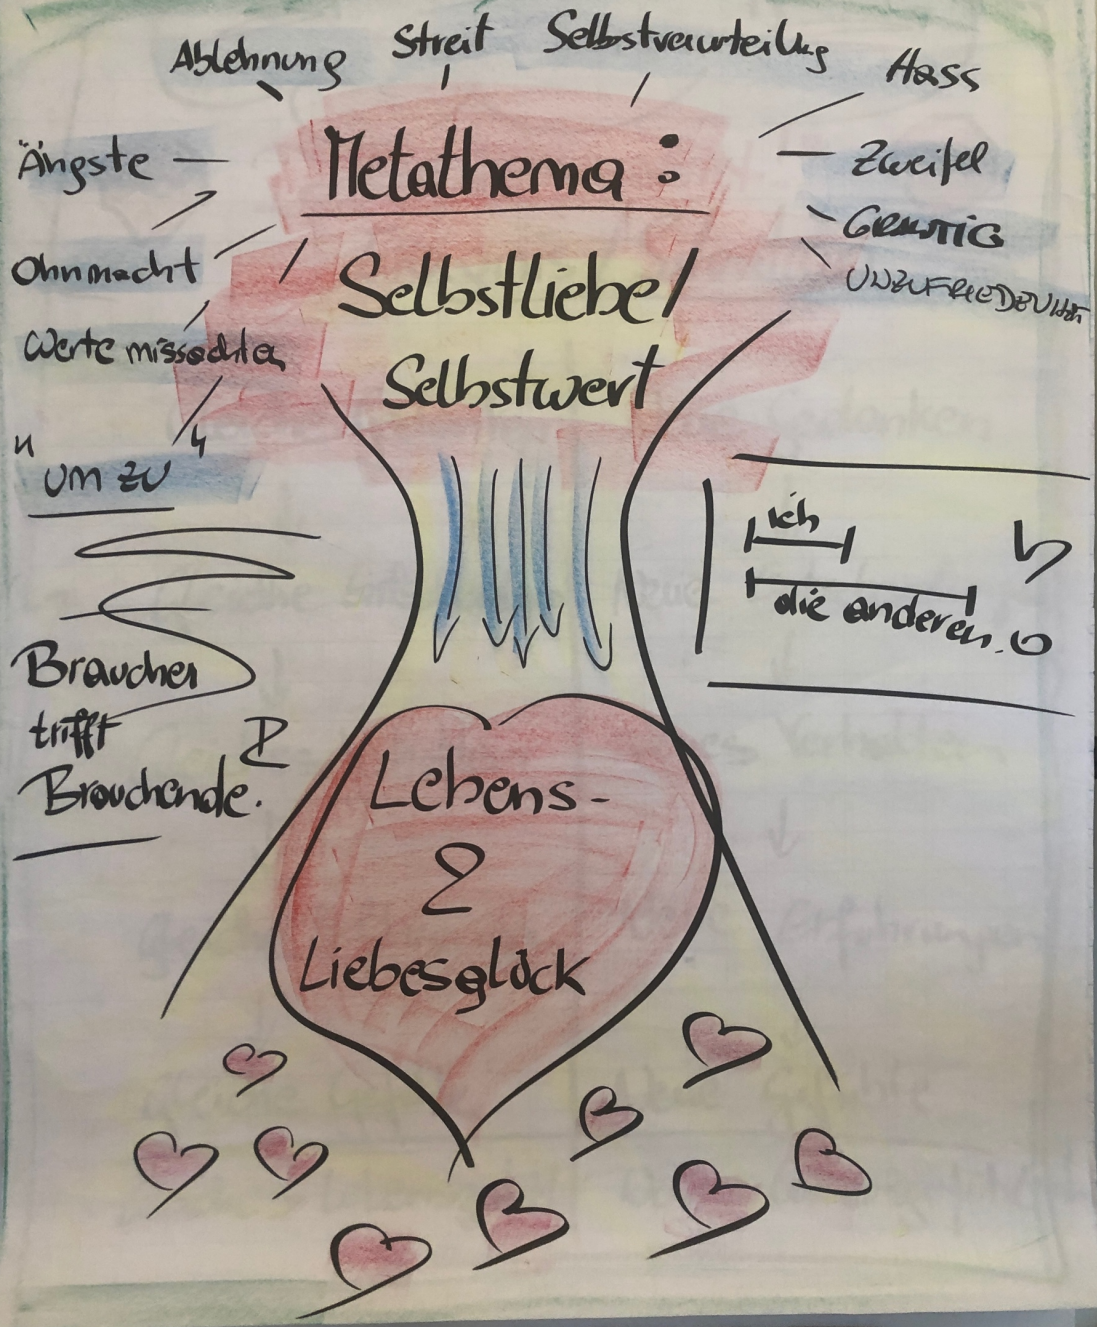 Ablehnung
Streit
Selbstverurteilung
Hass
Ängste
Metathema:
Zweifel
Ohnmacht
Selbstliebe/
UNZUFRIEDENHEIT
Werte missachten
Selbstwert
"um zu"
ich
die anderen.
Braucher
trifft
Brauchende.
Lebens-
&
Liebesglück